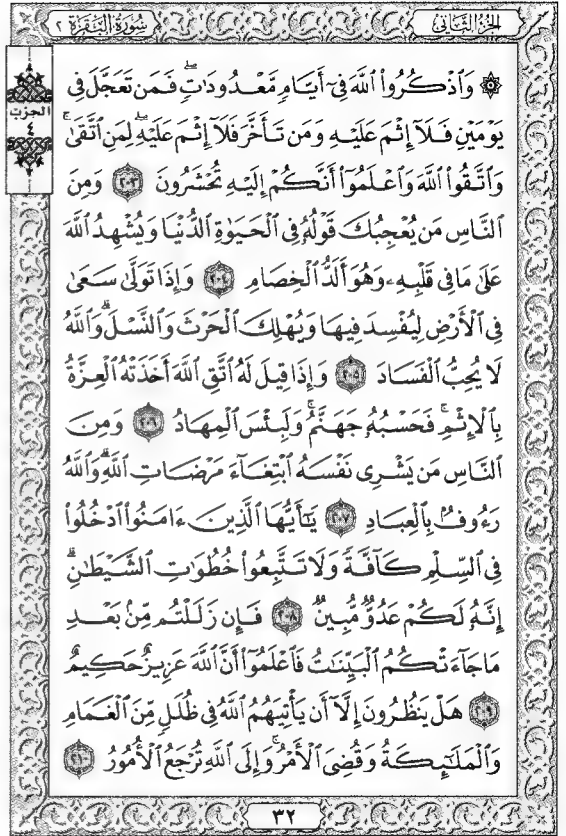 الجزء الثاني
سورة البقرة ٢
الحزب
٤
۞ وَٱذْكُرُوا۟ ٱللَّهَ فِىٓ أَيَّامٍۢ مَّعْدُودَٰتٍۢ ۚ فَمَن تَعَجَّلَ فِى
يَوْمَيْنِ فَلَآ إِثْمَ عَلَيْهِ وَمَن تَأَخَّرَ فَلَآ إِثْمَ عَلَيْهِ ۚ لِمَنِ ٱتَّقَىٰ ۗ
وَٱتَّقُوا۟ ٱللَّهَ وَٱعْلَمُوٓا۟ أَنَّكُمْ إِلَيْهِ تُحْشَرُونَ ٢٠٣ وَمِنَ
ٱلنَّاسِ مَن يُعْجِبُكَ قَوْلُهُۥ فِى ٱلْحَيَوٰةِ ٱلدُّنْيَا وَيُشْهِدُ ٱللَّهَ
عَلَىٰ مَا فِى قَلْبِهِۦ وَهُوَ أَلَدُّ ٱلْخِصَامِ ٢٠٤ وَإِذَا تَوَلَّىٰ سَعَىٰ
فِى ٱلْأَرْضِ لِيُفْسِدَ فِيهَا وَيُهْلِكَ ٱلْحَرْثَ وَٱلنَّسْلَ ۗ وَٱللَّهُ
لَا يُحِبُّ ٱلْفَسَادَ ٢٠٥ وَإِذَا قِيلَ لَهُ ٱتَّقِ ٱللَّهَ أَخَذَتْهُ ٱلْعِزَّةُ
بِٱلْإِثْمِ ۚ فَحَسْبُهُۥ جَهَنَّمُ ۚ وَلَبِئْسَ ٱلْمِهَادُ ٢٠٦ وَمِنَ
ٱلنَّاسِ مَن يَشْرِى نَفْسَهُ ٱبْتِغَآءَ مَرْضَاتِ ٱللَّهِ ۗ وَٱللَّهُ
رَءُوفٌۢ بِٱلْعِبَادِ ٢٠٧ يَٰٓأَيُّهَا ٱلَّذِينَ ءَامَنُوا۟ ٱدْخُلُوا۟
فِى ٱلسِّلْمِ كَآفَّةً وَلَا تَتَّبِعُوا۟ خُطُوَٰتِ ٱلشَّيْطَٰنِ ۚ
إِنَّهُۥ لَكُمْ عَدُوٌّ مُّبِينٌ ٢٠٨ فَإِن زَلَلْتُم مِّنۢ بَعْدِ
مَا جَآءَتْكُمُ ٱلْبَيِّنَٰتُ فَٱعْلَمُوٓا۟ أَنَّ ٱللَّهَ عَزِيزٌ حَكِيمٌ
٢٠٩ هَلْ يَنظُرُونَ إِلَّآ أَن يَأْتِيَهُمُ ٱللَّهُ فِى ظُلَلٍۢ مِّنَ ٱلْغَمَامِ
وَٱلْمَلَٰٓئِكَةُ وَقُضِىَ ٱلْأَمْرُ ۚ وَإِلَى ٱللَّهِ تُرْجَعُ ٱلْأُمُورُ ٢١٠
٣٢